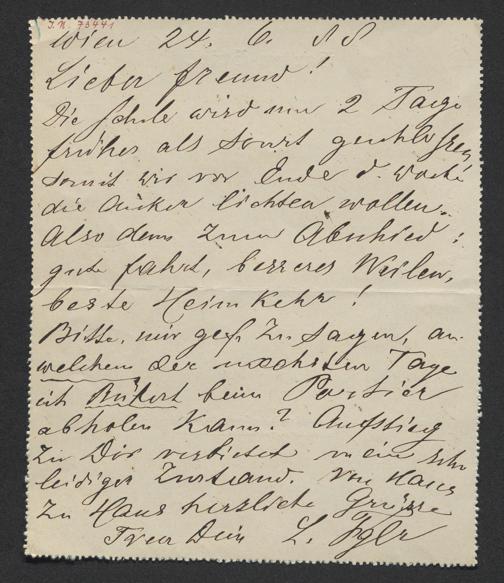 J.N. 73441
Wien 24. 6. 88
Lieber Freund!
Die Schule wird um 2 Tage
früher als sonst geschlossen
somit wir vor Ende d. Woche
die Anker lichten wollen.
Also denn zum Abschied:
gute Fahrt, besseres Weilen,
beste Heimkehr!
Bitte, mir gef. zu sagen, an
welchem der nächsten Tage
ich beim Portier
abholen kann? Aufstieg
zu Dir verbietet mein sehr
leidiger Zustand. Von Haus
zu Haus herzliche Grüsse
Treu Dein L.